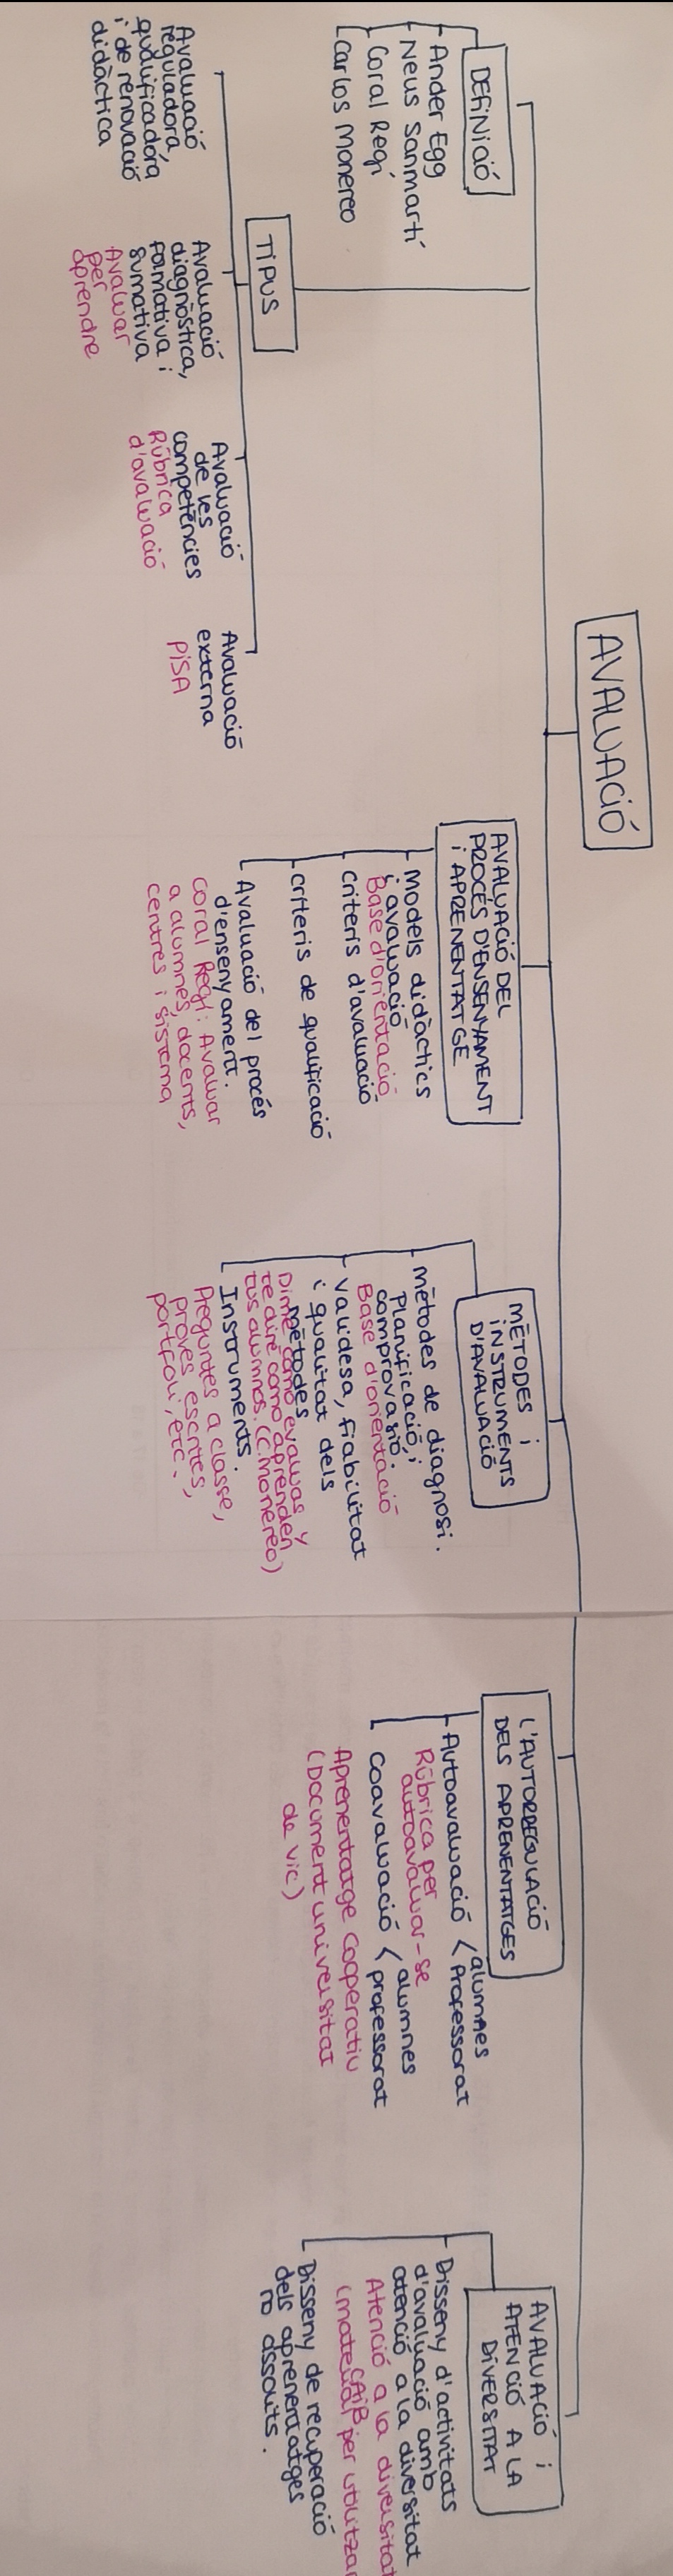 AVALUACIÓ
DEFINICIÓ
Ander Egg
Neus Sanmartí
Coral Regí
Carlos Monereo
TIPUS
Avaluació
reguladora,
qualificadora
i de renovació
didàctica
Avaluació
diagnòstica,
formativa i
sumativa
Avaluar
per
aprendre
Avaluació
de les
competències
Rúbrica
d'avaluació
Avaluació
externa
PISA
AVALUACIÓ DEL
PROCÉS D'ENSENYAMENT
i APRENENTATGE
Models didàctics
i avaluació
Base d'orientació
criteris d'avaluació
criteris de qualificació
Avaluació del procés
d'ensenyament.
Coral Regí: Avaluar
a alumnes, docents,
centres i sistema
MÈTODES i
INSTRUMENTS
D'AVALUACIÓ
mètodes de diagnosi.
Planificació i
comprovació.
Base d'orientació
Validesa, fiabilitat
i qualitat dels
mètodes
Dime cómo evaluas y
te diré como aprenden
tus alumnos. (C. Monereo)
Instruments.
Preguntes a classe,
proves escrites,
portfoli, etc.
L'AUTORREGULACIÓ
DELS APRENENTATGES
Autoavaluació < alumnes
Professorat
Rúbrica per
autoavaluar-se
Coavaluació < alumnes
professorat
Aprenentatge Cooperatiu
(Document universitat
de Vic)
AVALUACIÓ i
ATENCIÓ A LA
DIVERSITAT
Disseny d'activitats
d'avaluació amb
atenció a la diversitat
Atenció a la diversitat
CAIB
(material per utilitzar
Disseny de recuperació
dels aprenentatges
no assolits.